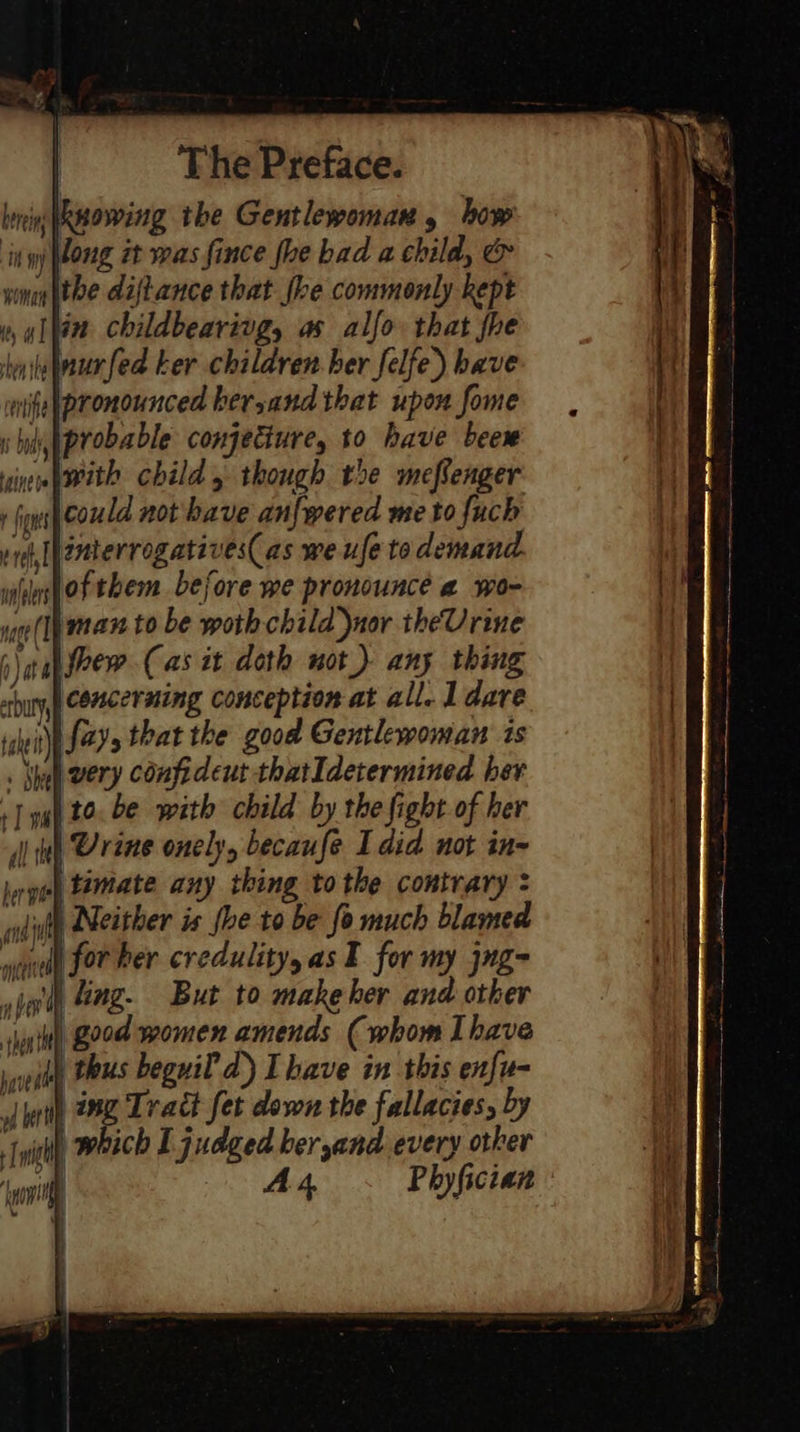 The Preface.
knowing the Gentlewoman, how
long it was ſince ſhe had a child, &
the diſtance that ſhe commonly kept
in childbearing, as alſo that ſhe
nurſed her children her ſelfe) have
pronounced her, and that upon ſome
probable conjecture, to have been
with child, though the meſſenger
could not have anſwered me to ſuch
interrogatives (as we uſe to demand
of them before we pronounce a wo-
man to be woth child) nor the Urine
ſhew (as it doth not) any thing
concerning conception at all. I dare
ſay, that the good Gentlewoman is
very confident that I determined her
to be with child by the ſight of her
Urine onely, becauſe I did not in-
timate any thing to the contrary:
Neither is ſhe to be ſo much blamed
for her credulity, as I for my jug-
ling. But to make her and other
good women amends (whom I have
thus beguil'd) I have in this enſu-
ing Tract ſet down the fallacies, by
which I judged her, and every other
A 4 Phyſician